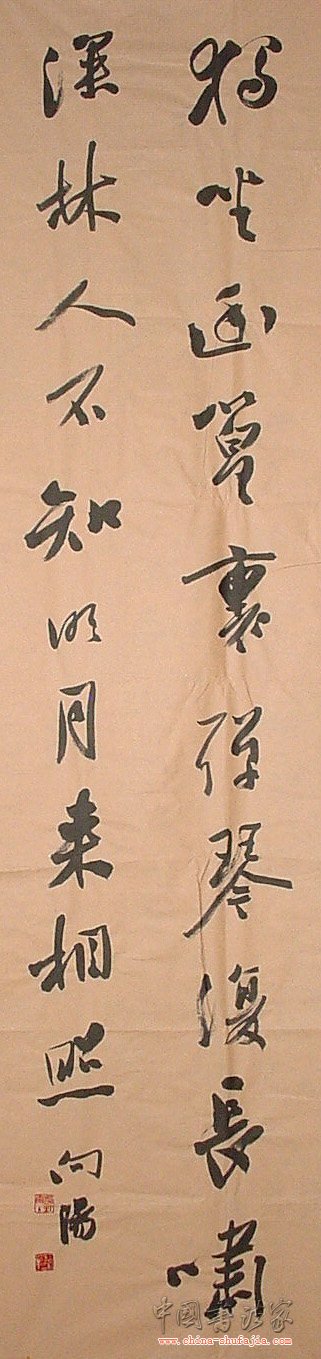 独坐幽篁裏弹琴復長嘯
深林人不知明月来相照
向陽
中国书法家
www.china-shufajia.com